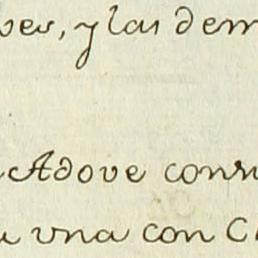 ves, y las dem
Adove cons
una con C